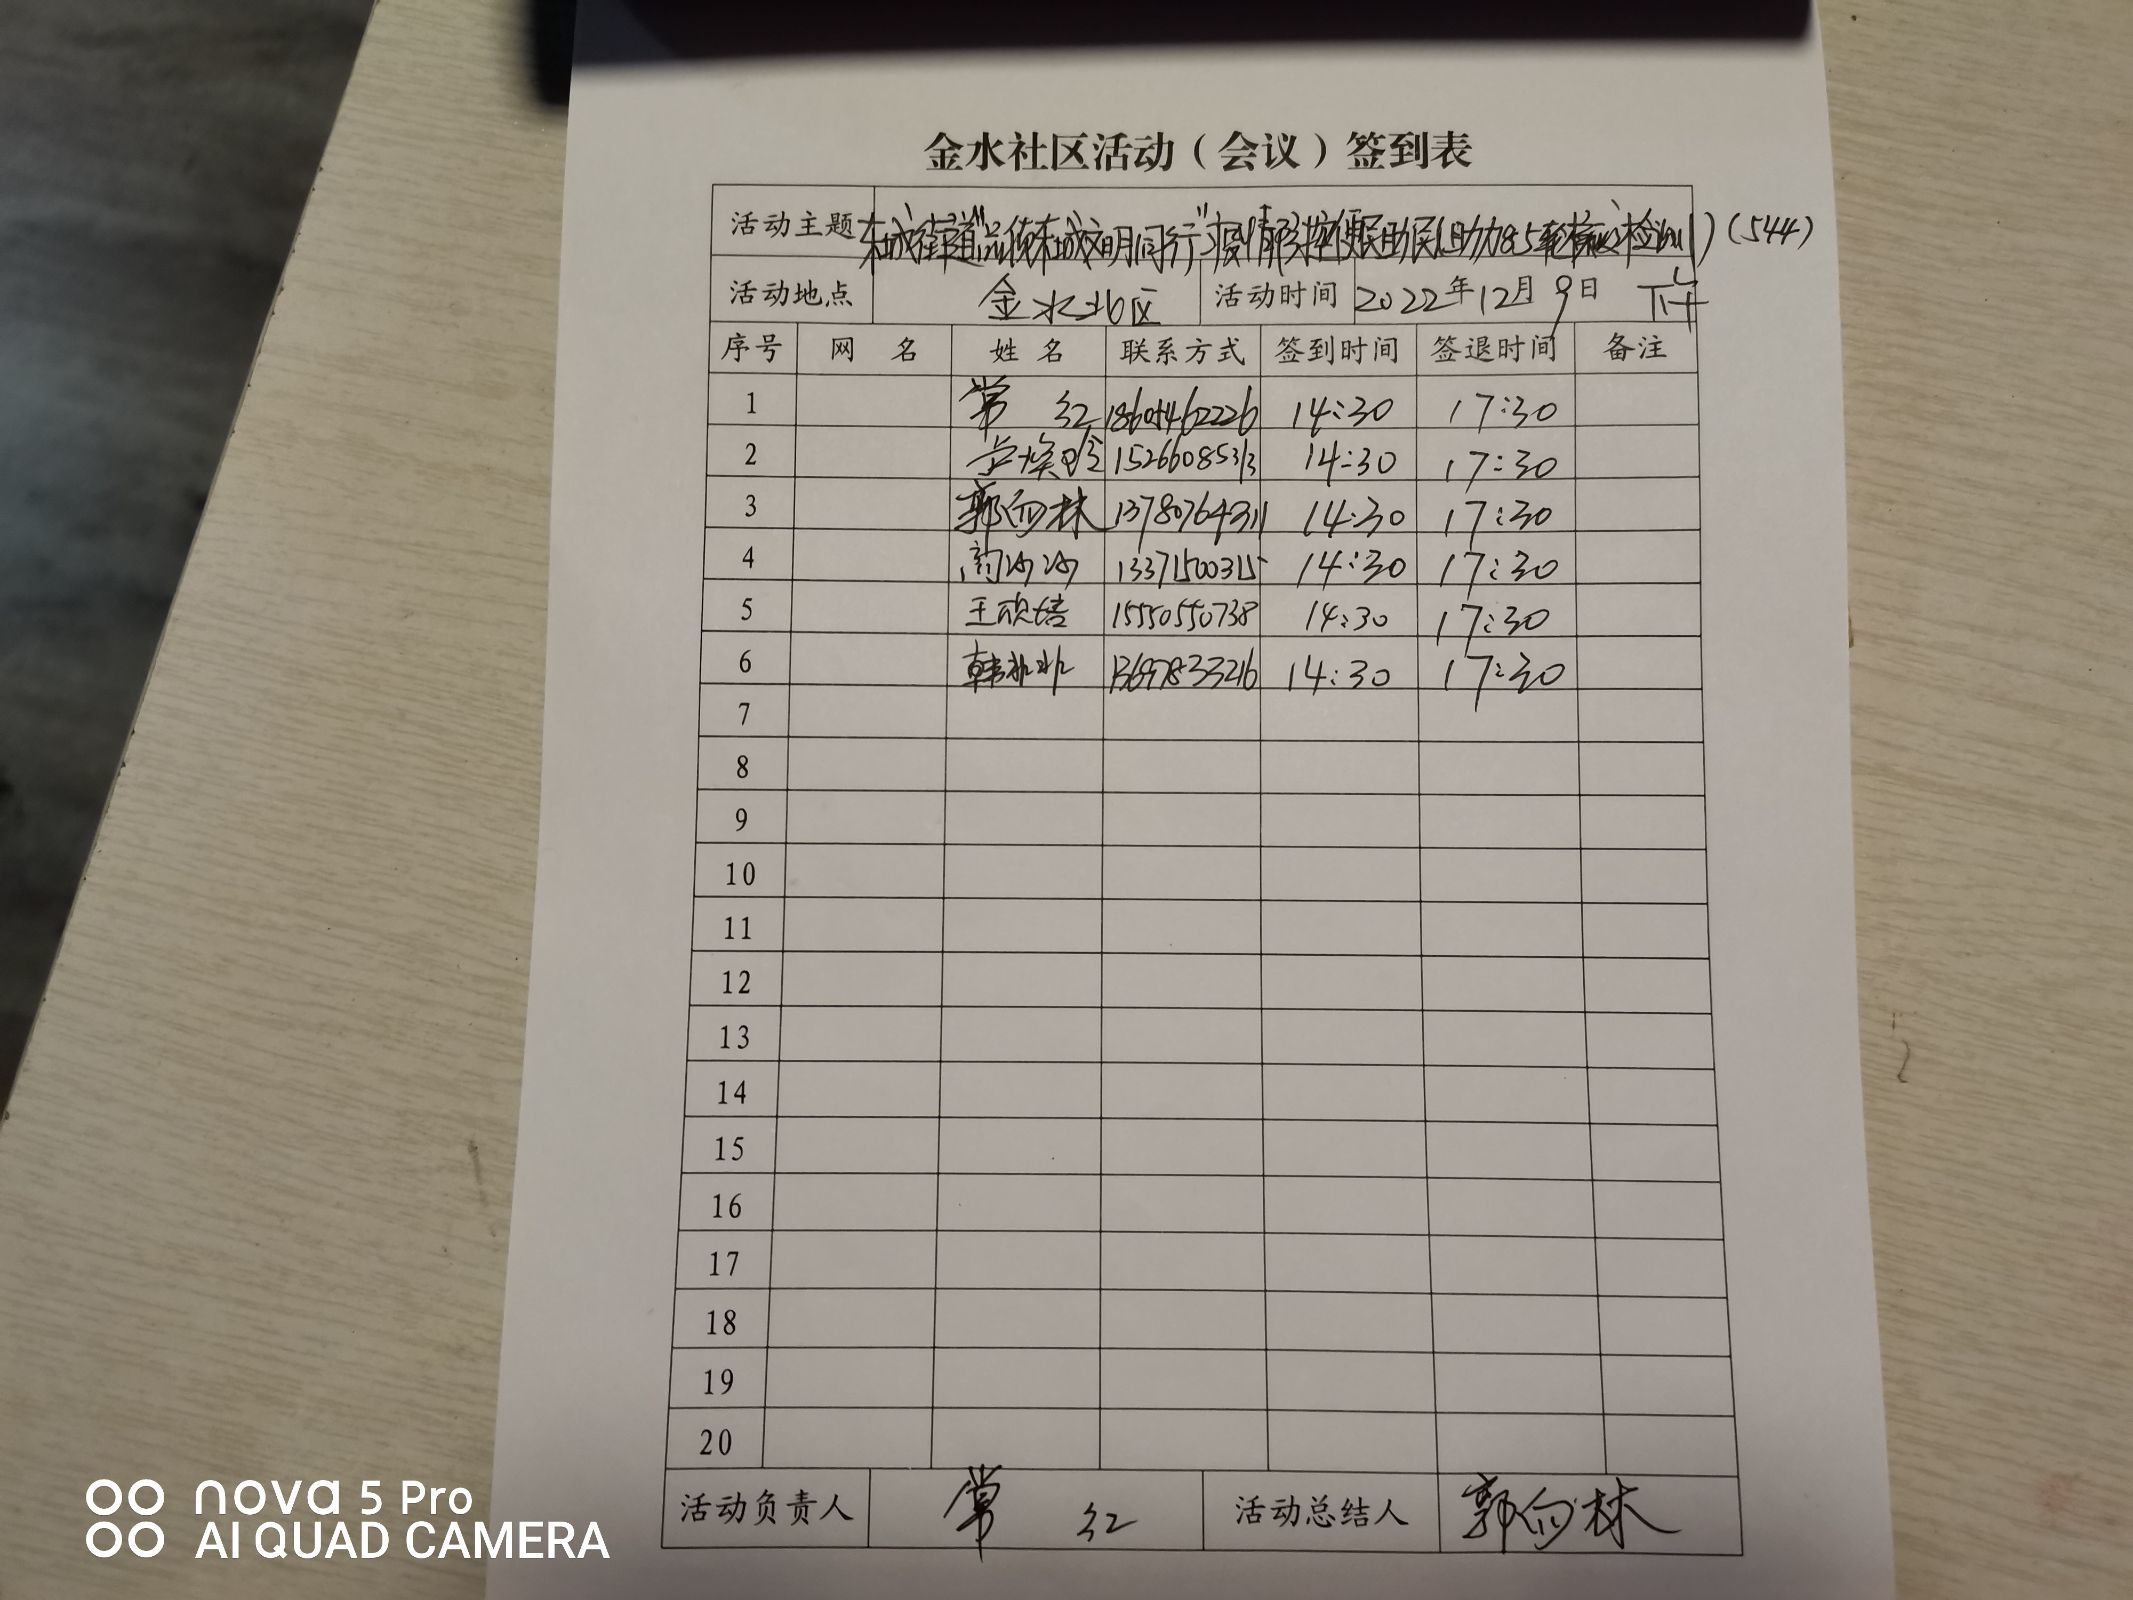 金水社区活动（会议）签到表
活动主题 东城街道"品传东城文明同行"疫情防控便民助民(助力85轮核酸检测)(544)
活动地点 金水北区 活动时间 2022年12月9日 下午
序号 网 名 姓 名 联系方式 签到时间 签退时间 备注
1 常 红 14:30 17:30
2 15266085313 14:30 17:30
3 郭向林 13780764311 14:30 17:30
4 13371500315 14:30 17:30
5 王硕培 15550550738 14:30 17:30
6 韩 13697833216 14:30 17:30
7
8
9
10
11
12
13
14
15
16
17
18
19
20
活动负责人 常 红 活动总结人 郭向林
nova 5 Pro
AI QUAD CAMERA